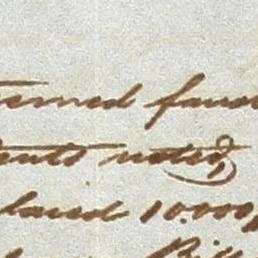 termed favor
ents noted
laced 10.000
Bill